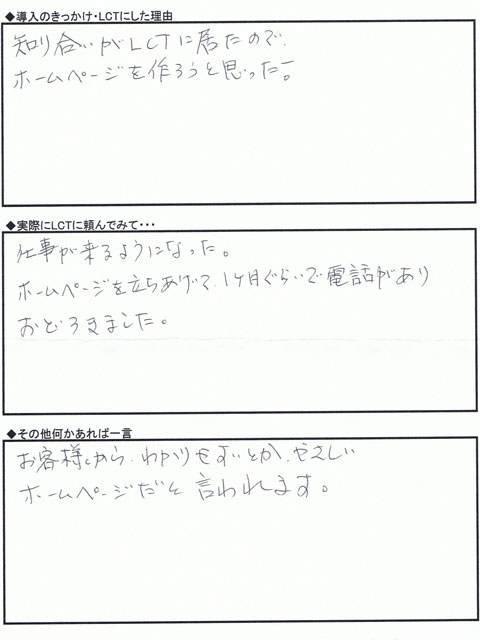 ◆導入のきっかけ・LCTにした理由
知り合いがLCTに居たので、
ホームページを作ろうと思った。
◆実際にLCTに頼んでみて・・・
仕事が来るようになった。
ホームページを立ちあげて、1ヶ月ぐらいで電話があり
おどろきました。
◆その他何かあれば一言
お客様から、わかりやすいとか、やさしい
ホームページだと言われます。